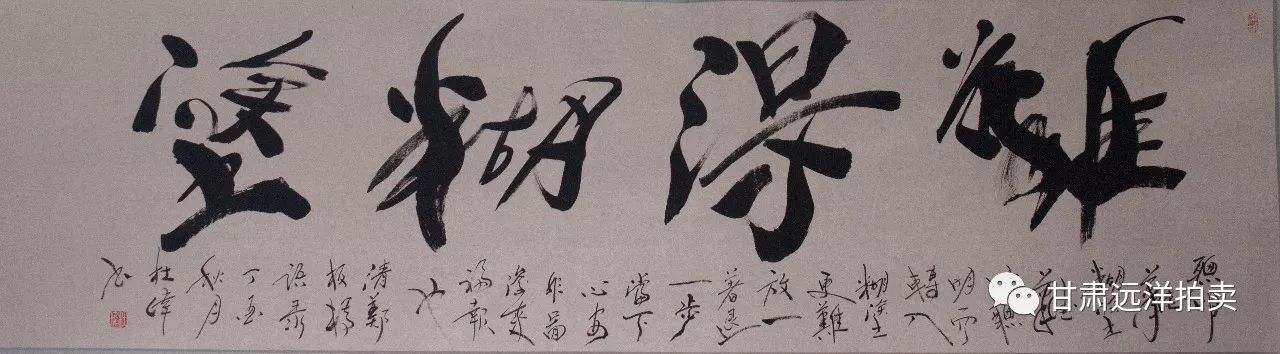 難得糊塗
聰明
難得
糊塗
難得
由聰
明而
轉入
糊塗
更難
放一
著退
一步
當下
心安
非圖
後來
福報
也
清鄭
板橋
語錄
丁酉
秋月
杜
書
甘肃远洋拍卖